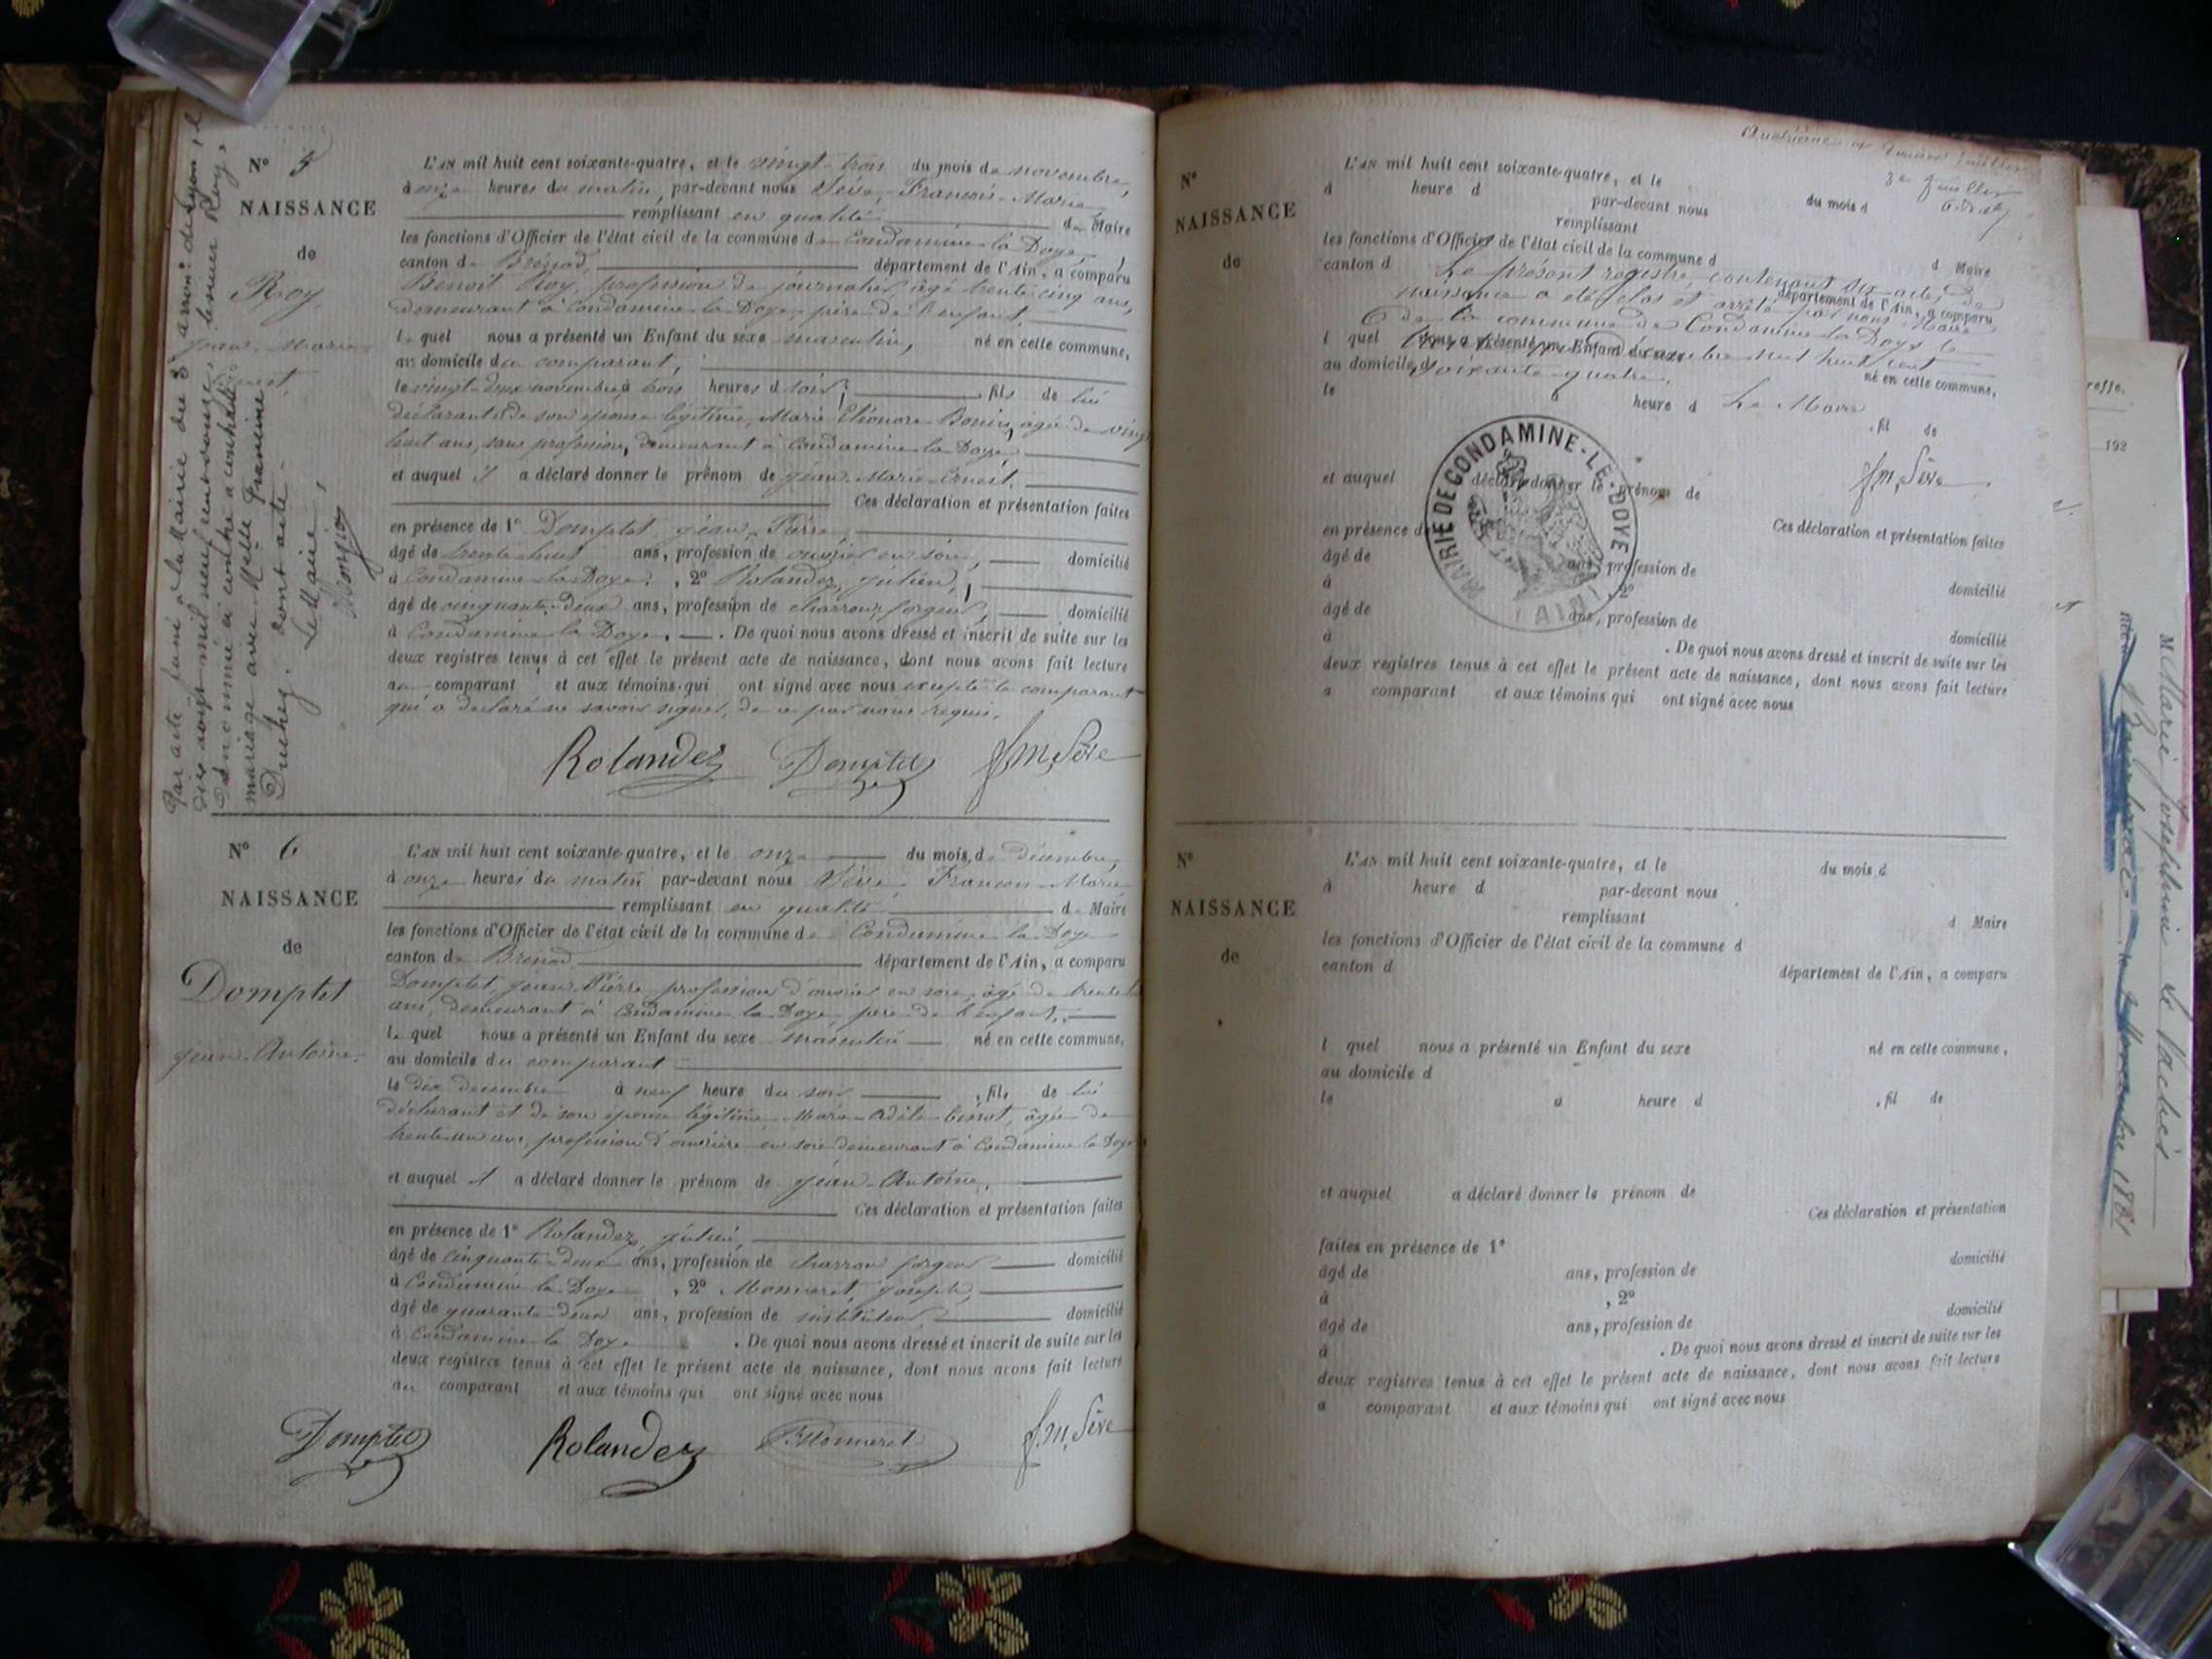 N° 5
NAISSANCE
de
Roy
Jean-Marie
Ernest
Par acte passé à la Mairie du 3e arron.t de Lyon, le
dix août mil neuf cent onze, Roy
Dénommé ci contre a contracté
mariage avec Melle Francine
Duchez. dont acte
Le Maire,
L'AN mil huit cent soixante-quatre, et le vingt-trois du mois de novembre,
à onze heures du matin, par-devant nous Sève, François-Marie
remplissant en qualité de Maire
les fonctions d'Officier de l'état civil de la commune de Condamine-la-Doye,
canton de Brénod, département de l'Ain, a comparu
Benoit Roy, profession de journalier, âgé trente cinq ans,
demeurant à Condamine la Doye, père de l'enfant,
le quel nous a présenté un Enfant du sexe masculin, né en cette commune,
au domicile du comparant,
le vingt-deux novembre, à trois heures du soir; fils de lui
déclarant et de son épouse légitime, Marie Eléonore Bonin, âgée de vingt
huit ans, sans profession, demeurant à Condamine-la-Doye,
et auquel il a déclaré donner le prénom de Jean-Marie-Ernest.
Ces déclaration et présentation faites
en présence de 1° Domptet, Jean-Pierre,
âgé de trente-huit ans, profession de ouvrier en soie, domicilié
à Condamine-la-Doye, 2° Rolandez, Julien,
âgé de cinquante-deux ans, profession de charron forgeur, domicilié
à Condamine la Doye. De quoi nous avons dressé et inscrit de suite sur les
deux registres tenus à cet effet le présent acte de naissance, dont nous avons fait lecture
au comparant et aux témoins qui ont signé avec nous excepté le comparant
qui a déclaré ne savoir signer, de ce par nous requis.
Rolandez Domptet f.m. Sève
N° 6
NAISSANCE
de
Domptet
Jean-Antoine.
L'AN mil huit cent soixante-quatre, et le onze du mois de décembre,
à onze heures du matin par-devant nous Sève François-Marie
remplissant en qualité de Maire
les fonctions d'Officier de l'état civil de la commune de Condamine la Doye
canton de Brénod département de l'Ain, a comparu
Domptet Jean Pierre profession d'ouvrier en soie, âgé de trente
ans, demeurant à Condamine la Doye, père de l'enfant,
le quel nous a présenté un Enfant du sexe masculin né en cette commune,
au domicile du comparant
le dix décembre à neuf heure du soir, fils de lui
déclarant et de son épouse légitime, Marie-Adèle, âgée de
trente-un ans, profession d'ouvrière en soie demeurant à Condamine la Doye
et auquel il a déclaré donner le prénom de Jean-Antoine.
Ces déclaration et présentation faites
en présence de 1° Rolandez Julien
âgé de cinquante-deux ans, profession de charron forgeur domicilié
à Condamine la Doye, 2° Monneret, Joseph,
âgé de quarante-deux ans, profession de instituteur, domicilié
à Condamine la Doye. De quoi nous avons dressé et inscrit de suite sur les
deux registres tenus à cet effet le présent acte de naissance, dont nous avons fait lecture
au comparant et aux témoins qui ont signé avec nous
Domptet Rolandez Monneret f.m. Sève
Quatrième et dernier feuillet
N°
NAISSANCE
de
L'AN mil huit cent soixante-quatre, et le du mois d
à heure d par-devant nous
remplissant d Maire
les fonctions d'Officier de l'état civil de la commune d
canton d département de l'Ain, a comparu
Le présent registre, contenant six actes de
naissance a été clos et arrêté par nous Maire
de la commune de Condamine la Doye le
décembre mil huit cent
soixante-quatre.
Le Maire
f.m. Sève
l quel nous a présenté un Enfant du sexe né en cette commune,
au domicile d
le à heure d , fil de
MAIRIE DE CONDAMINE-LE-DOYE
(AIN)
et auquel a déclaré donner le prénom de
Ces déclaration et présentation faites
en présence de
âgé de ans, profession de domicilié
à , 2°
âgé de ans, profession de domicilié
à . De quoi nous avons dressé et inscrit de suite sur les
deux registres tenus à cet effet le présent acte de naissance, dont nous avons fait lecture
a comparant et aux témoins qui ont signé avec nous
N°
NAISSANCE
de
L'AN mil huit cent soixante-quatre, et le du mois d
à heure d par-devant nous
remplissant d Maire
les fonctions d'Officier de l'état civil de la commune d
canton d département de l'Ain, a comparu
l quel nous a présenté un Enfant du sexe né en cette commune,
au domicile d
le à heure d , fil de
et auquel a déclaré donner le prénom de
Ces déclaration et présentation
faites en présence de 1°
âgé de ans, profession de domicilié
à , 2°
âgé de ans, profession de domicilié
à . De quoi nous avons dressé et inscrit de suite sur les
deux registres tenus à cet effet le présent acte de naissance, dont nous avons fait lecture
a comparant et aux témoins qui ont signé avec nous
192
Marie Joséphine
1881